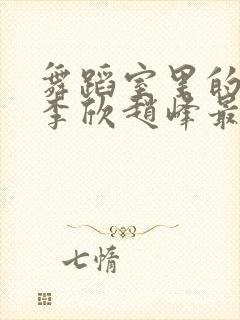 舞蹈室里的
李欣赵峰最
七情